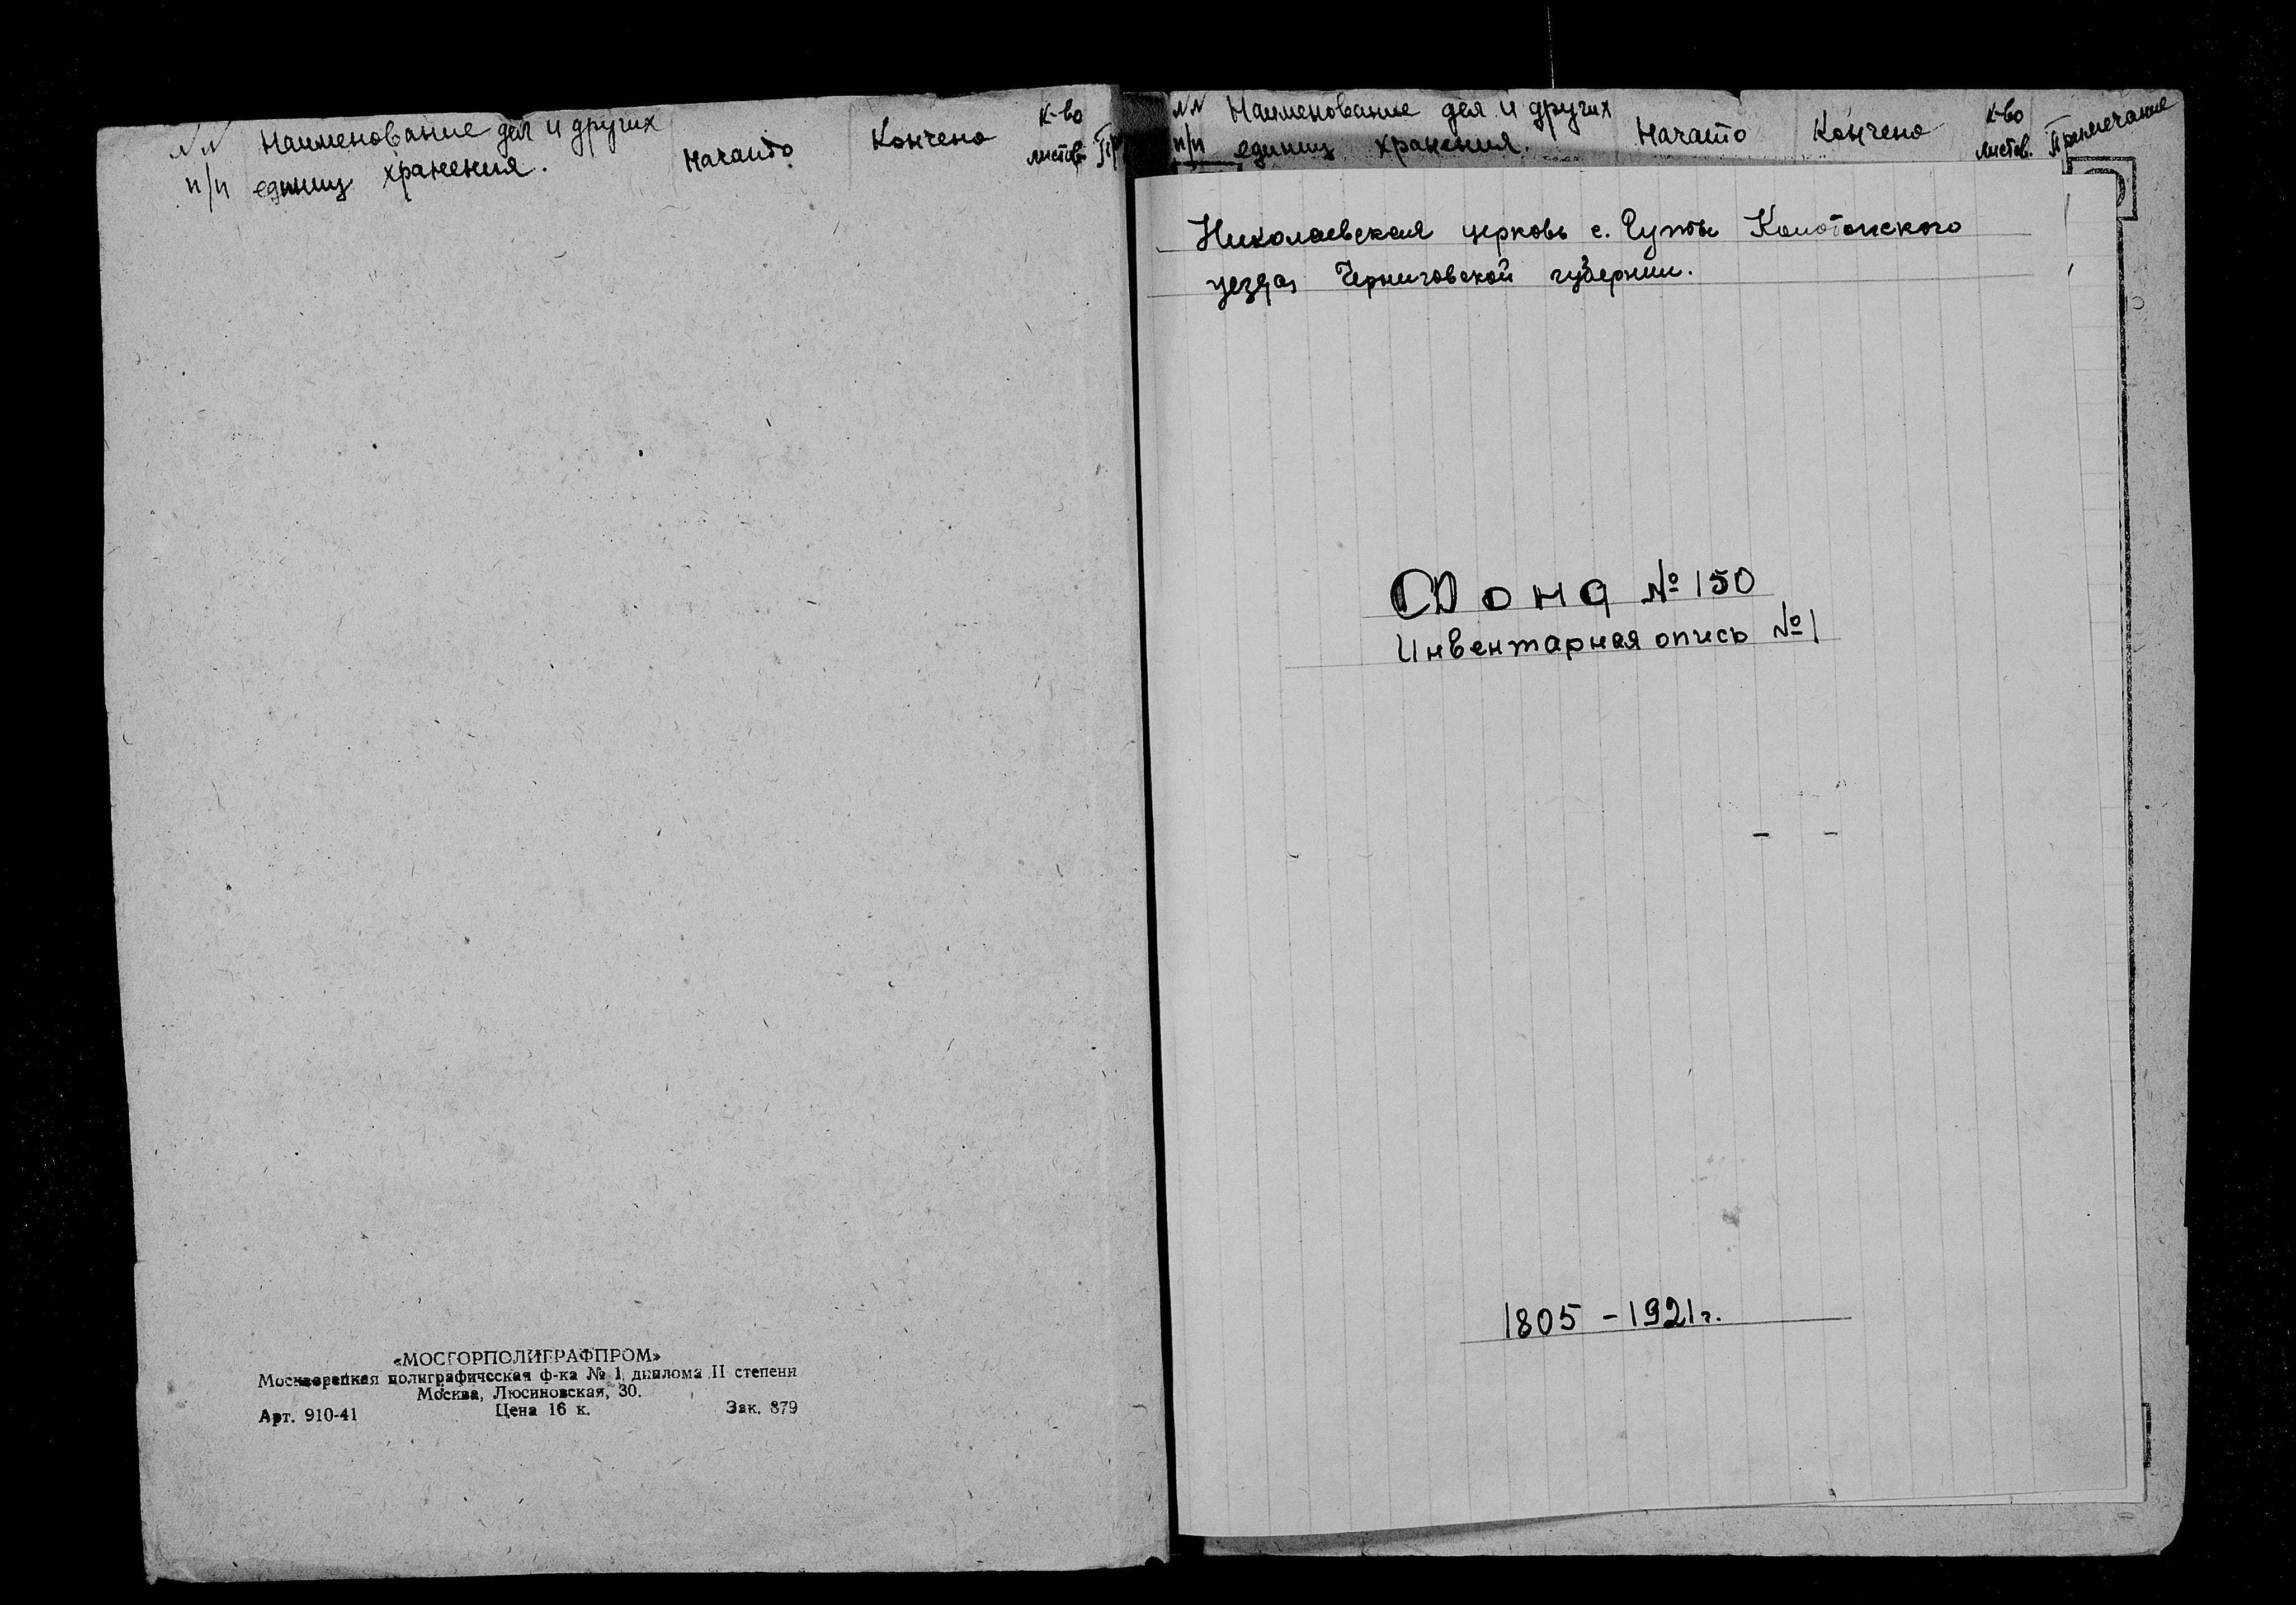 №№ Наименование дел и других Начато Кончено к-во
п/п единиц хранения. листов Пр
«МОСГОРПОЛИГРАФПРОМ»
Москворецкая полиграфическая ф-ка № 1 диплома II степени
Москва, Люсиновская, 30.
Арт. 910-41 Цена 16 к. Зак. 879
№№ Наименование дел и других Начато Кончено к-во Примечание
п/п единиц хранения. листов.
Николаевская церковь с. Гуты Конотопского
уезда Черниговской губернии.
Фонд № 150
Инвентарная опись №1
1805 - 1921 г.